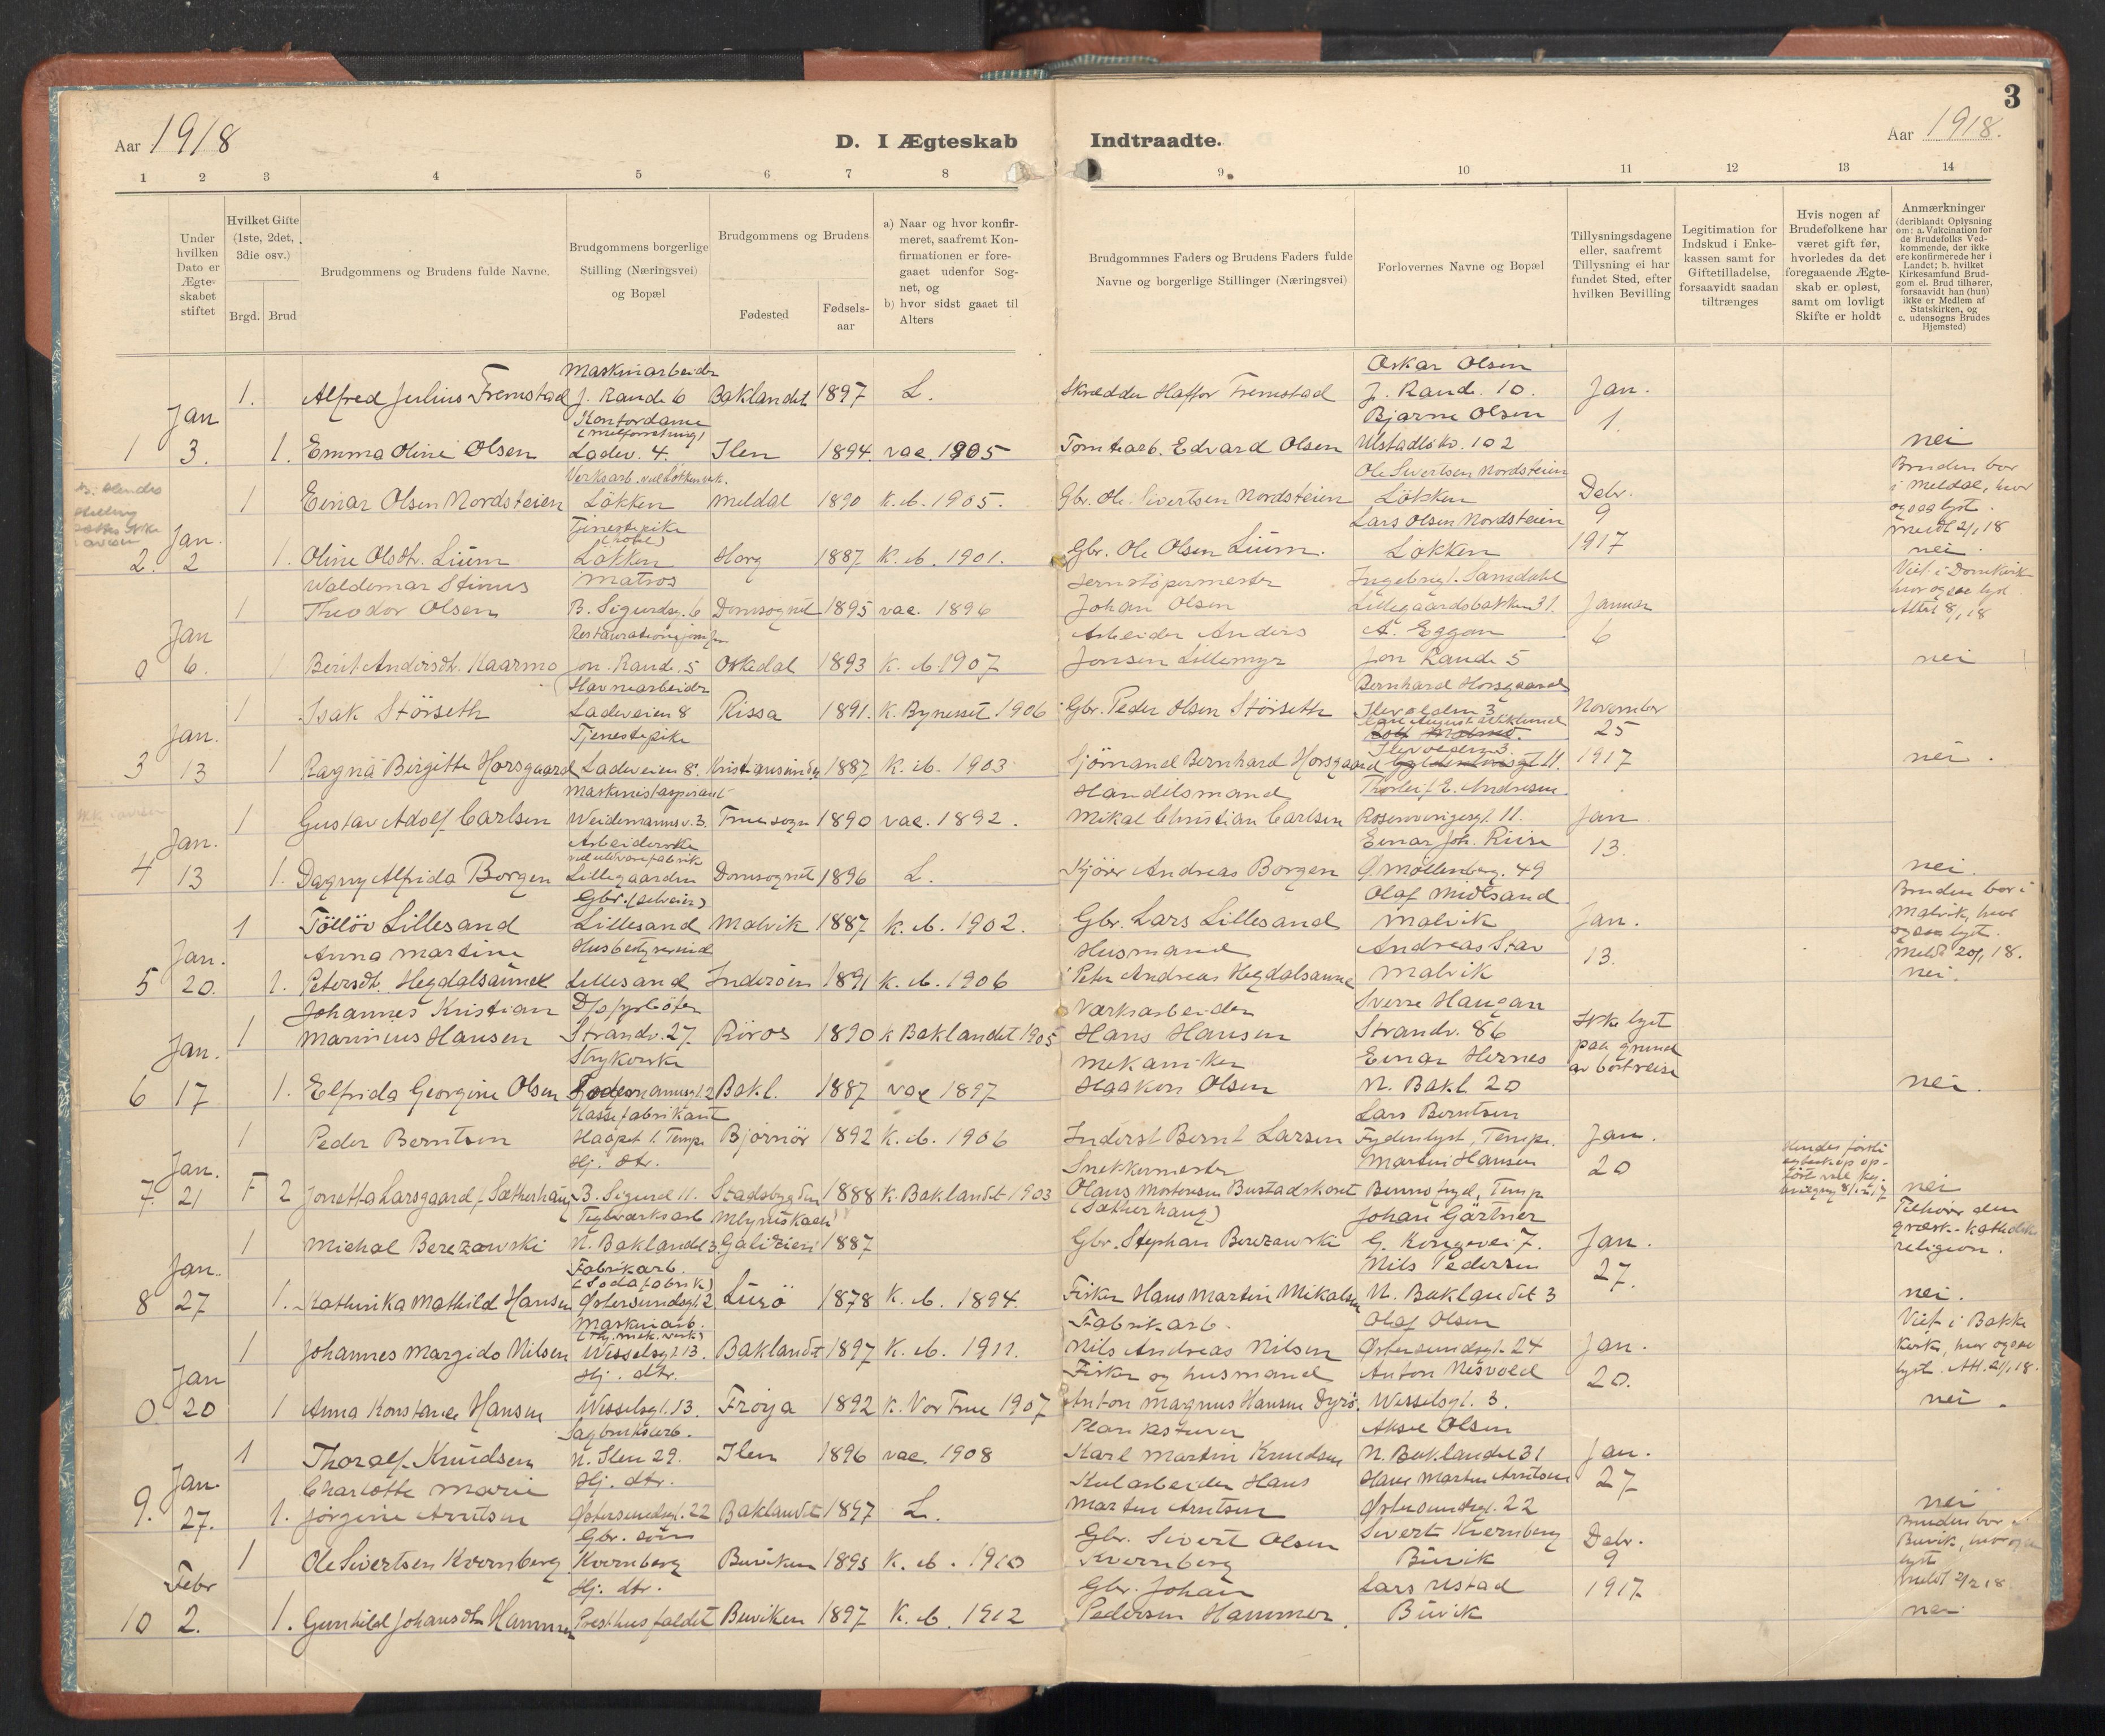 3
Aar 1918
D. I Ægteskab Indtraadte.
Aar 1918.
1 2 3 4 5 6 7 8 9 10 11 12 13 14
Under hvilken Dato er Ægteskabet stiftet
Hvilket Gifte (1ste, 2det, 3die osv.)
Brgd. Brud
Brudgommens og Brudens fulde Navne.
Brudgommens borgerlige Stilling (Næringsvei) og Bopæl
Brudgommens og Brudens
Fødested
Fødsels-aar
a) Naar og hvor konfirmeret, saafremt Konfirmationen er foregaaet udenfor Sognet, og
b) hvor sidst gaaet til Alters
Brudgommnes Faders og Brudens Faders fulde Navne og borgerlige Stillinger (Næringsvei)
Forlovernes Navne og Bopæl
Tillysningsdagene eller, saafremt Tillysning ei har fundet Sted, efter hvilken Bevilling
Legitimation for Indskud i Enkekassen samt for Giftetilladelse, forsaavidt saadan tiltrænges
Hvis nogen af Brudefolkene har været gift før, hvorledes da det foregaaende Ægteskab er opløst, samt om lovligt Skifte er holdt
Anmærkninger (deriblandt Oplysning om: a. Vakcination for de Brudefolks Vedkommende, der ikke ere konfirmerede her i Landet; b. hvilket Kirkesamfund Brudgom el. Brud tilhører, forsaavidt han (hun) ikke er Medlem af Statskirken, og c. udensogns Brudes Hjemsted)
Maskinarbeider Oskar Olsen
1. Alfred Julius Fremstad J. Rands. 6 Baklandet 1897 L. Skrædder Haffor Fremstad J. Rands. 10. Jan.
Jan Kontordame Bjarne Olsen 1.
1 3. 1. Emma Oline Olsen Ladev. 4. Ilen 1894. vac. 1905 Tomtearb. Edvard Olsen 102 nei
Verksarb. ved Løkken verk. Ole Sivertsen Nordsteien Bruden bor
1 Einar Olsen Nordsteien Løkken Meldal 1890 K. ib. 1905. Gbr. Ole Sivertsen Nordsteien Løkken Debr. i Meldal, hvor
Tjenestepike Lars Olsen Nordsteien 9 ogsaa lyst.
Jan. meldt 2/1 18
2. 2 1. Oline Olsdtr. Lium Løkken Horg 1887 K. ib. 1901. Gbr. Ole Olsen Lium. Løkken 1917 nei.
Waldemar Stinus Matros Jernstøpermester Ingebrigt Samdahl Viet i Domkirk
1 Theodor Olsen B. Sigurdsg. 6 Domsognet 1895 vac. 1896 Johan Olsen Lillegaardsbakken 31. Januar hvor ogsaa lyst.
Jan Arbeider Anders A. Eggan 6 Attest 8/1 18
0 6. 1 Berit Andersdt. Kaarmo Jon. Rands. 5 1893 K. ib. 1907 Jonsen Lillemyr Jon Rands 5 nei
Havnearbeider Bernhard Horsgaard
1 Isak Størseth Ladeveien 8 Rissa 1891. K. Bynesset 1906 Gbr. Peder Olsen Størseth Ilevolden 3 November
Jan. Tjenestepike 25
3 13 1 Ragna Birgitte Horsgaard Ladeveien 8. Kristiansund 1887 K. ib. 1903 Sjømand Bernhard Horsgaard 1917 nei.
Maskinistaspirant Handelsmand Thorleif E. Andresen
1 Gustav Adolf Carlsen Weidemannsv. 3. Fruesogn 1890 vac. 1892. Mikal Christian Carlsen 11. Jan
Jan. Arbeiderske Einar Joh. Riise 13.
4 13 1. Dagny Alfrida Borgen Lillegaarden Domsognet 1896 L. Kjører Andreas Borgen Ø. Møllenberg. 49 nei.
Gbr. (selveier) Olaf Midtsand Bruden bor i
1 Tølløv Lillesand Lillesand Malvik 1887 K. ib. 1902. Gbr. Lars Lillesand Malvik Jan. Malvik, hvor
Jan. Anna Martine Husbestyrerinde Husmand Andreas Stav 13. ogsaa lyst.
Meldt 20/1 18.
5 20. 1. Petersdt. Hegdalsaunet Lillesand Inderøen 1891 K. ib. 1906 Peter Andreas Hegdalsaune Malvik nei.
Johannes Kristian D/s fyrbøter Værksarbeider Sverre Haugan
1 Marinius Hansen Strandv. 27. Røros 1890 K Baklandet 1905 Hans Hansen Strandv. 86 Ikke lyst
Jan. Strykerske Mekaniker Einar Hernes paa grund av bortreise
6 17 1. Elfrida Georgine Olsen Bakl. 1887 vac 1897 Haakon Olsen N. Bakl. 20 nei.
Kassefabrikant Lars Berntsen
1 Peder Berntsen Haapet p. Tempe Bjørnør 1892 K. ib. 1906 Inderst Bernt Larsen Fydenlyst, Tempe. Jan.
Jan. Hj. dtr. Snekkermester Martin Hansen 20
7. 21 F 2 Jonetta Larsgaard f. Sætherhaug B. Sigurd 11. Stadsbygden 1888 K. Baklandet 1903 Olaus Mortensen Bustadskaret Bennofryd, Tempe nei
Teglværksarb (Sætherhaug) Johan Gärtner Tilhører den
1 Michal Berezowski N. Baklandet 3. Galizien 1887 Gbr. Stephan Berezowski G. Kongevei 7. Jan. græsk-katholske
religion.
Jan. Fabrikarb. (Sodafabrik) Nils Pedersen 27.
8 27 1. Kathinka Mathild Hansen Østersundsgt. 2 Lurø 1878 K. ib. 1894. Fisker Hans Martin Mikalsen N. Baklandet 3 nei.
Maskinarb. Fabrikarb. Olaf Olsen Viet i Bakke
1 Johannes Margido Nilsen Wesselsgt. 13. Baklandet 1897 K. ib. 1911. Nils Andreas Nilsen Østersundsgt. 24 Jan. Kirke, hvor ogsaa
Jan Hj. dtr. Fisker og husmand Anton Nesvold 20. lyst.
0. 20 1 Anna Konstance Hansen Wesselsgt. 13. Frøya 1892 K. Vor Frue 1907 Anton Magnus Hansen Dyrø. Wesselsgt. 3. nei.
Sagbruksarb. Aksel Olsen
1 Thoralf Knudsen N. Ilen 29. Ilen 1896 vac. 1908 Karl Martin Knudsen N. Baklandet 31 Jan.
Jan. Charlotte Marie Hj. dtr. Kularbeider Hans Hans Martin Arntsen 27
9. 27. 1. Jørgine Arntsen Østersundsgt. 22 Baklandet 1897 L. Martin Arntsen Østersundsgt. 22 nei
Gbr. søn Gbr. Sivert Olsen Sivert Kvernberg Debr. Bruden bor i
1 Ole Sivertsen Kvernberg Kvernberg Buviken 1895 K. ib. 1910 Kvernberg Buvik 9 Buvik, hvor ogsaa lyst
Febr Hj. dtr. Gbr. Johan Lars Ustad 1917 Meldt 2/2 18
10 2. 1. Gunhild Johansdtr Hammer Presthusfaldet Buviken 1897 K. ib. 1912 Pedersen Hammer. Buvik nei